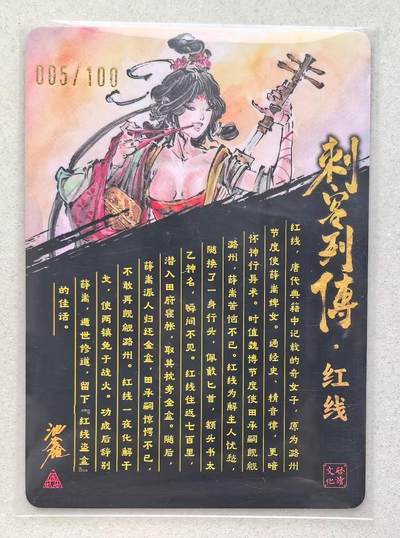 005/100
刺客列傳·红线
红线，唐代典籍中记载的奇女子，原为潞州
节度使薛嵩婢女。通经史、精音律，更暗
怀神行异术。时值魏博节度使田承嗣觊觎
潞州，薛嵩苦恼不已。红线为解主人忧愁，
随换了一身行头，佩戴匕首，额头书太
乙神名，瞬间不见。红线往返七百里，
潜入田府寝帐，取其枕旁金盒。随后
薛嵩派人归还金盒，田承嗣惊愕不已，
不敢再觊觎潞州。红线一夜化解干
戈，使两镇免于战火。功成后辞别
薛嵩，遁世修道，留下“红线盗盒”
的佳话。
文化